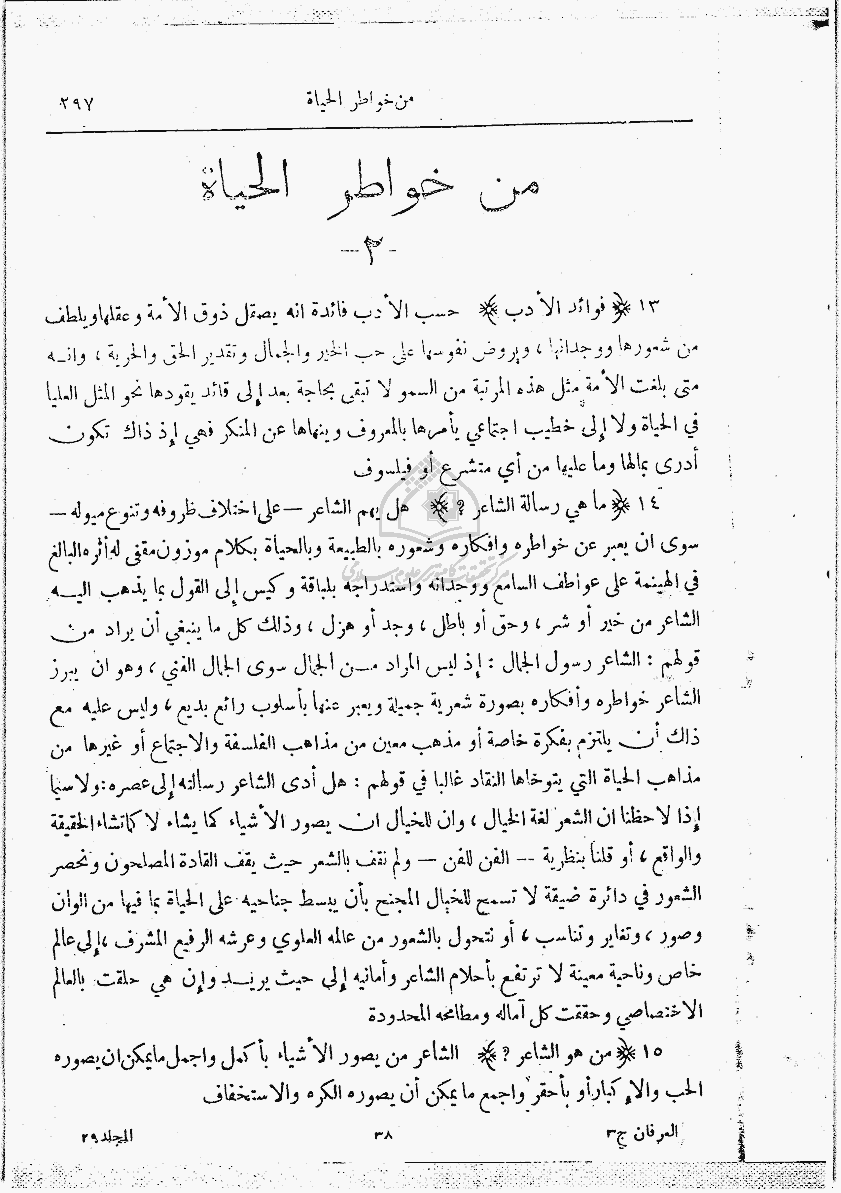 من خواطر الحياة ٢٩٧
من خواطر الحياة
-٢-
١٣ ﴿ فوائد الأدب ﴾ حسب الأدب فائدة انه يصقل ذوق الأمة وعقلها ويلطف
من شعورها ووجدانها ، ويروض نفوسها على حب الخير والجمال وتقدير الحق والحرية ، وانه
متى بلغت الأمة مثل هذه المرتبة من السمو لا تبقى بحاجة بعد إلى قائد يقودها نحو المثل العليا
في الحياة ولا إلى خطيب اجتماعي يأمرها بالمعروف وينهاها عن المنكر فهي إذ ذاك تكون
أدرى بمالها وما عليها من أي متشرع أو فيلسوف
١٤ ﴿ ما هي رسالة الشاعر ? ﴾ هل يهم الشاعر – على اختلاف ظروفه وتنوع ميوله –
سوى ان يعبر عن خواطره وافكاره وشعوره بالطبيعة وبالحياة بكلام موزون مقفى له أثره البالغ
في الهيمنة على عواطف السامع ووجدانه واستدراجه بلباقة وكيس إلى القول بما يذهب اليه
الشاعر من خير أو شر ، وحق أو باطل ، وجد أو هزل ، وذلك كل ما ينبغي أن يراد من
قولهم : الشاعر رسول الجمال : إذ ليس المراد من الجمال سوى الجمال الفني ، وهو ان يبرز
الشاعر خواطره وأفكاره بصورة شعرية جميلة ويعبر عنها بأسلوب رائع بديع ، وليس عليه مع
ذاك أن يلتزم بفكرة خاصة أو مذهب معين من مذاهب الفلسفة والاجتماع أو غيرها من
مذاهب الحياة التي يتوخاها النقاد غالبا في قولهم : هل أدى الشاعر رسالته إلى عصره : ولا سيما
إذا لاحظنا ان الشعر لغة الخيال ، وان للخيال ان يصور الأشياء كما يشاء لا كما تشاء الحقيقة
والواقع ، أو قلنا بنظرية -- الفن للفن – ولم نقف بالشعر حيث يقف القادة المصلحون ونحصر
الشعور في دائرة ضيقة لا تسمح للخيال المجنح بأن يبسط جناحيه على الحياة بما فيها من الوان
وصور ، وتغاير وتناسب ، أو نتحول بالشعور من عالمه العلوي وعرشه الرفيع المشرف ، إلى عالم
خاص وناحية معينة لا ترتفع بأحلام الشاعر وأمانيه إلى حيث يريد وإن هي حلقت بالعالم
الاختصاصي وحققت كل آماله ومطامحه المحدودة
١٥ ﴿ من هو الشاعر ? ﴾ الشاعر من يصور الأشياء بأكمل واجمل ما يمكن ان يصوره
الحب والإكبار أو بأحقر واجمع ما يمكن أن يصوره الكره والاستخفاف
العرفان ج٣ ٣٨ المجلد ٢٩